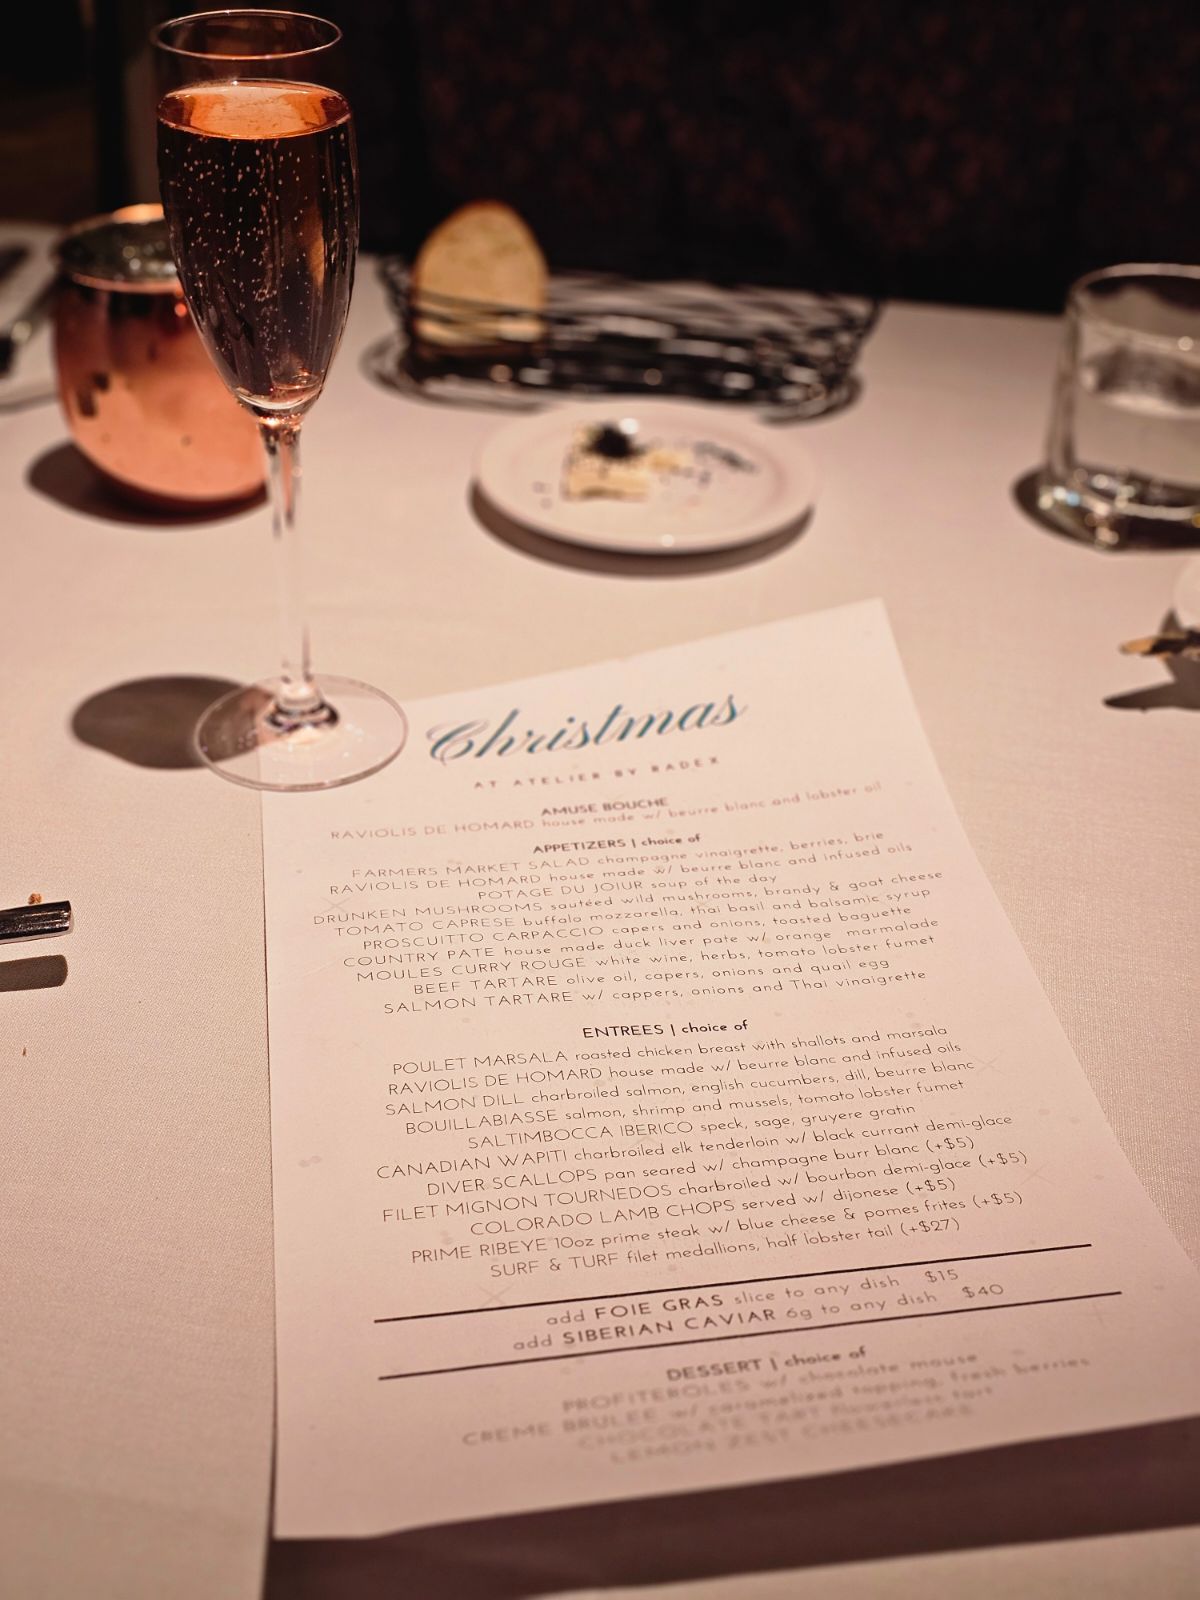 Christmas
AT ATELIER BY RADEX
AMUSE BOUCHE
RAVIOLIS DE HOMARD house made w/ beurre blanc and lobster oil
APPETIZERS | choice of
FARMERS MARKET SALAD champagne vinaigrette, berries, brie
RAVIOLIS DE HOMARD house made w/ beurre blanc and infused oils
POTAGE DU JOIUR soup of the day
DRUNKEN MUSHROOMS sautéed wild mushrooms, brandy & goat cheese
TOMATO CAPRESE buffalo mozzarella, thai basil and balsamic syrup
PROSCUITTO CARPACCIO capers and onions, toasted baguette
COUNTRY PATE house made duck liver pate w/ orange marmalade
MOULES CURRY ROUGE white wine, herbs, tomato lobster fumet
BEEF TARTARE olive oil, capers, onions and quail egg
SALMON TARTARE w/ cappers, onions and Thai vinaigrette
ENTREES | choice of
POULET MARSALA roasted chicken breast with shallots and marsala
RAVIOLIS DE HOMARD house made w/ beurre blanc and infused oils
SALMON DILL charbroiled salmon, english cucumbers, dill, beurre blanc
BOUILLABIASSE salmon, shrimp and mussels, tomato lobster fumet
SALTIMBOCCA IBERICO speck, sage, gruyere gratin
CANADIAN WAPITI charbroiled elk tenderloin w/ black currant demi-glace
DIVER SCALLOPS pan seared w/ champagne burr blanc (+$5)
FILET MIGNON TOURNEDOS charbroiled w/ bourbon demi-glace (+$5)
COLORADO LAMB CHOPS served w/ dijonese (+$5)
PRIME RIBEYE 10oz prime steak w/ blue cheese & pomes frites (+$5)
SURF & TURF filet medallions, half lobster tail (+$27)
add FOIE GRAS slice to any dish $15
add SIBERIAN CAVIAR 6g to any dish $40
DESSERT | choice of
PROFITEROLES w/ chocolate mouse
CREME BRULEE w/ caramelised topping, fresh berries
CHOCOLATE TART flourless tart
LEMON ZEST CHEESECAKE